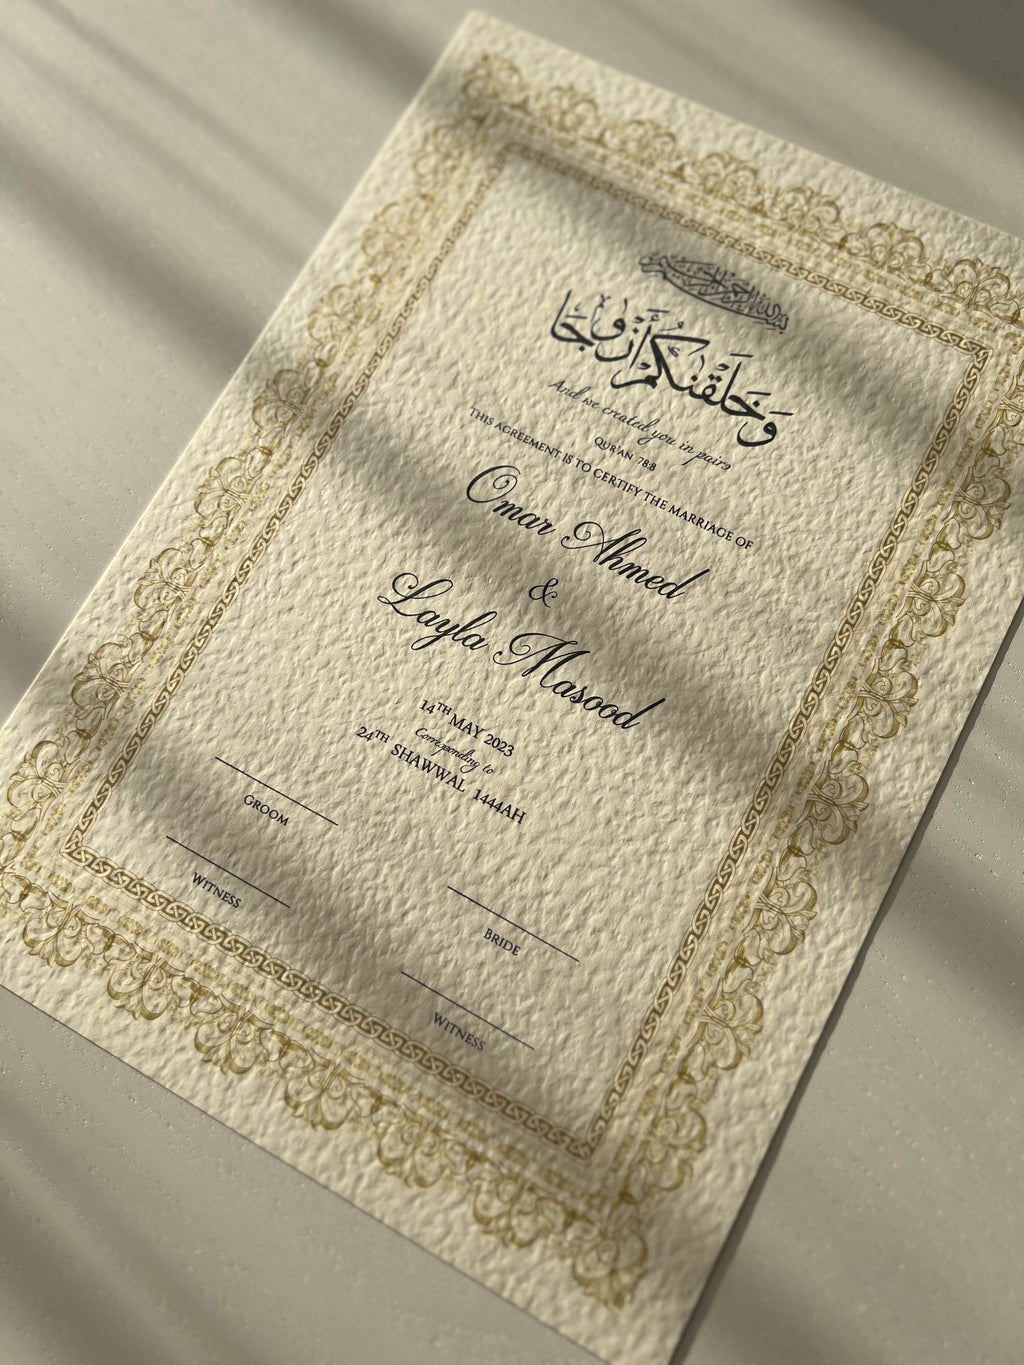 بسم الله الرحمن الرحيم
وَخَلَقْنَٰكُمْ أَزْوَٰجًا
And we created you in pairs
QUR'AN 78:8
THIS AGREEMENT IS TO CERTIFY THE MARRIAGE OF
Omar Ahmed
&
Layla Masood
14TH MAY 2023
Corresponding to
24TH SHAWWAL 1444AH
GROOM
BRIDE
WITNESS
WITNESS